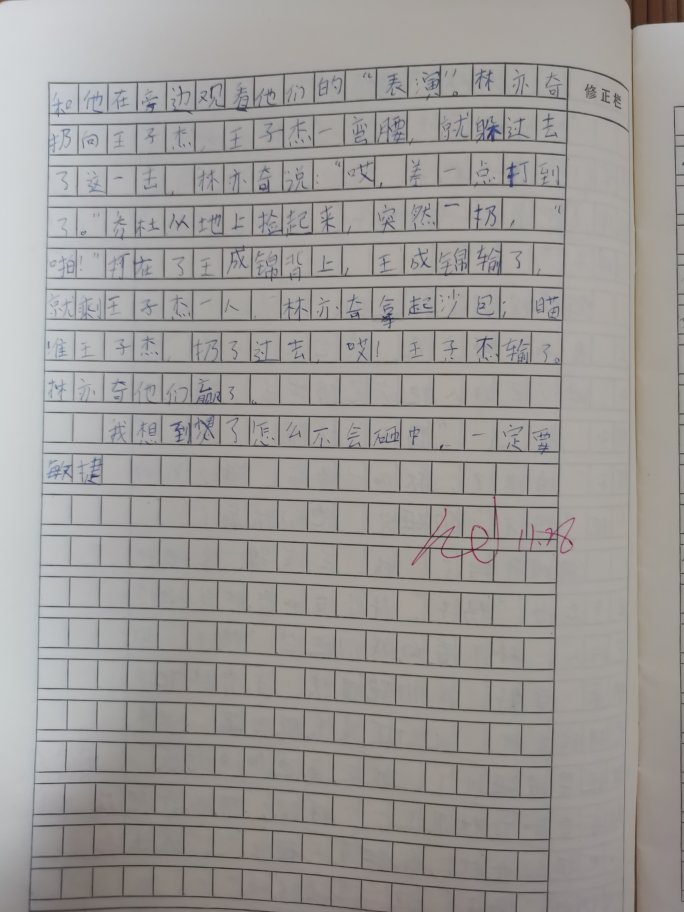 修正栏
和他在旁边观看他们的“表演”。林亦奇
扔向王子杰，王子杰一弯腰，就躲过去
了这一击，林亦奇说：“哎，差一点打到
了。”奇杜从地上捡起来，突然一扔，“
啪！”打在了王成锦背上，王成锦输了，
就剩王子杰一人，林亦奇拿起沙包；瞄
准王子杰，扔了过去，哎！王子杰输了。
林亦奇他们赢了。
我想到了怎么不会砸中，一定要
敏捷
11.28